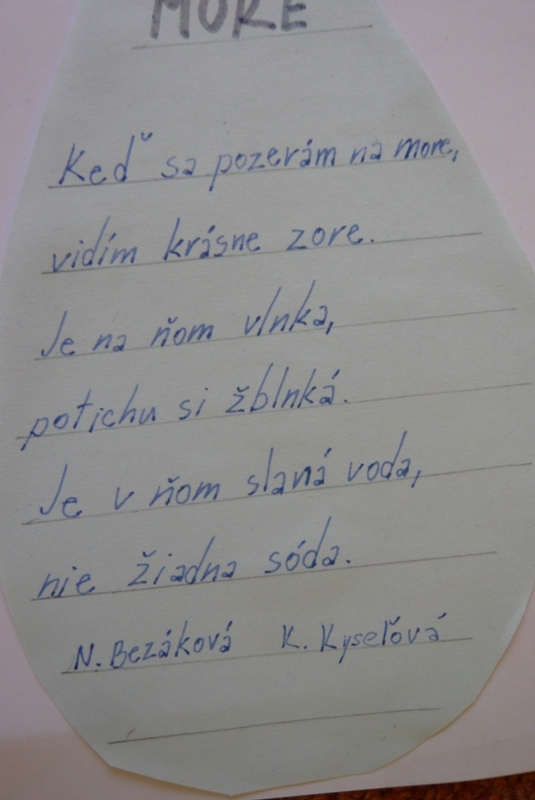 MORE
Keď sa pozerám na more,
vidím krásne zore.
Je na ňom vlnka,
potichu si žblnká.
Je v ňom slaná voda,
nie žiadna sóda.
N. Bezáková K. Kyseľová